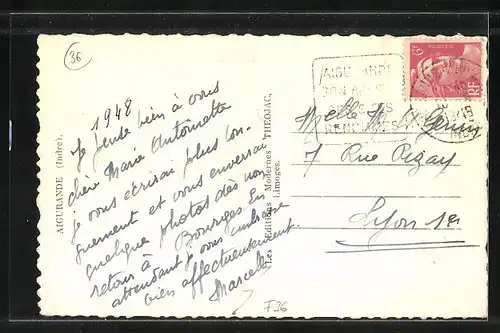 36
1948
Je pense bien à vous
chère Marie Antoinette
je vous écrirai plus lon-
guement et vous enverrai
quelque photos dès mon
retour à Bourges En
attendant je vous embrasse
bien affectueusement.
Marcelle
F36
AIGURANDE (Indre).
Les Editions Modernes THEOJAC, Limoges.
AIGURANDE
SON
POSTES
RF
Melle M. St
7 Rue Pizay
Lyon 1er